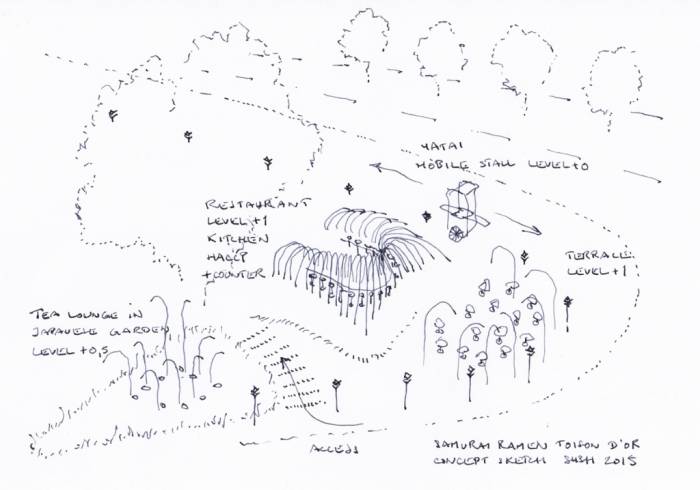 YATAI
MOBILE STALL LEVEL +0
RESTAURANT
LEVEL +1
KITCHEN
HACCP
+COUNTER
TERRACE
LEVEL +1
TEA LOUNGE IN
JAPANESE GARDEN
LEVEL +0,5
ACCESS
SAMURAI RAMEN TOISON D'OR
CONCEPT SKETCH 2015